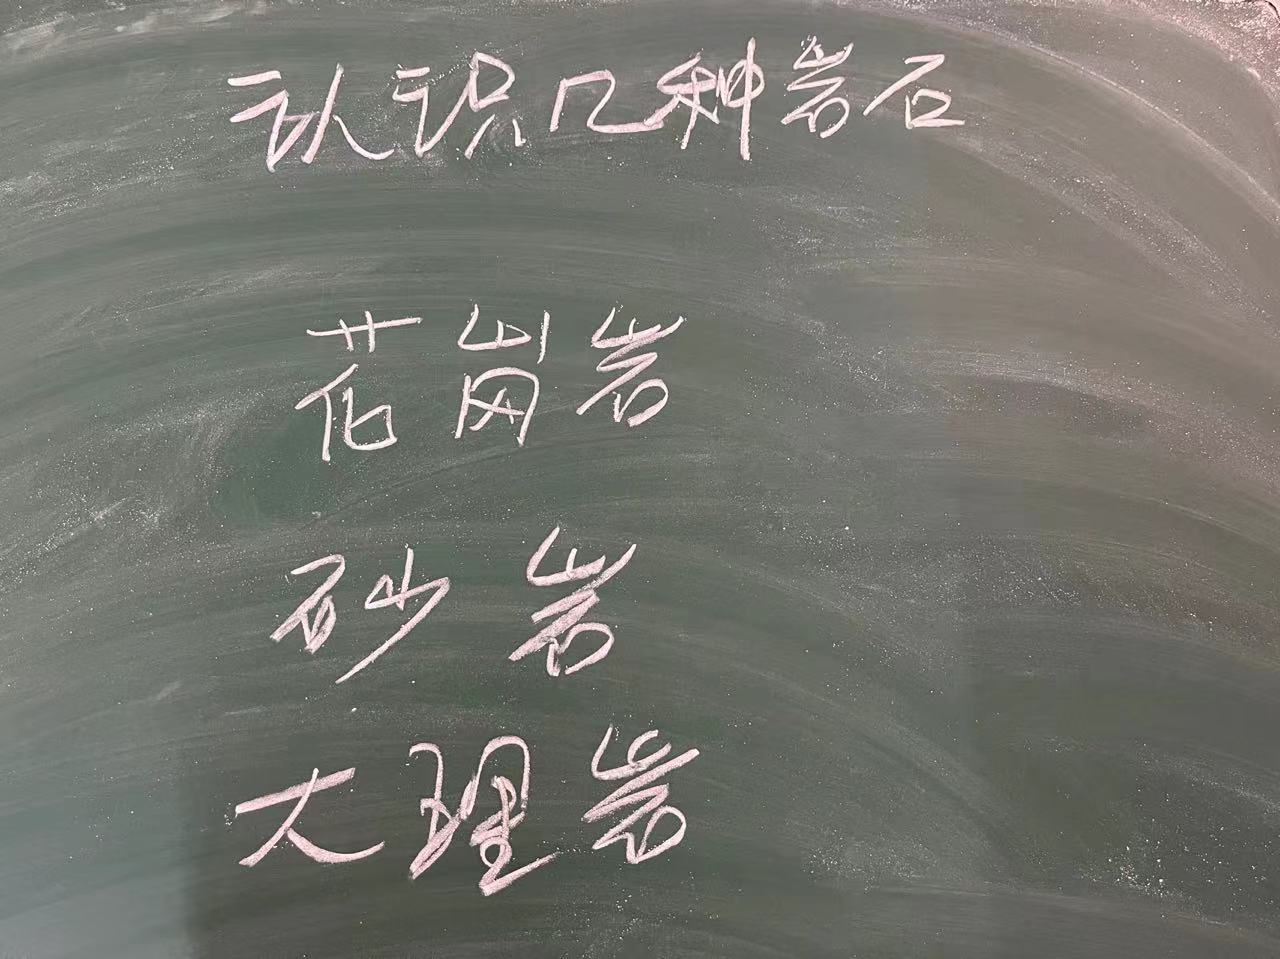 认识几种岩石
花岗岩
砂岩
大理岩